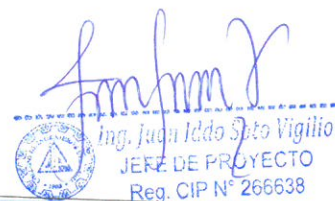 Ing. Juan Iddo Soto Vigilio
JEFE DE PROYECTO
Reg. CIP N° 266638